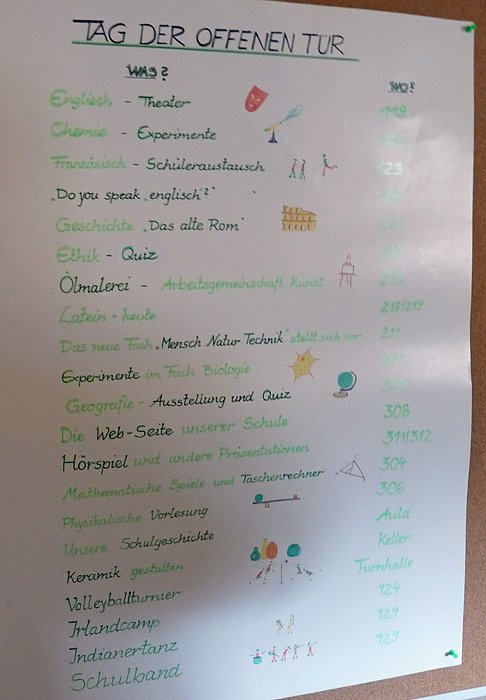 TAG DER OFFENEN TÜR
WAS? WO?
Englisch - Theater 119
Chemie - Experimente
Französisch - Schüleraustausch 123
„Do you speak englisch?"
Geschichte „Das alte Rom"
Ethik - Quiz
Ölmalerei - Arbeitsgemeinschaft Kunst 215
Latein - heute 218/219
Das neue Fach „Mensch Natur Technik" stellt sich vor. 211
Experimente im Fach Biologie
Geografie - Ausstellung und Quiz
Die Web-Seite unserer Schule 308
Hörspiel und andere Präsentationen 311/312
Mathematische Spiele und Taschenrechner 304
Physikalische Vorlesung 306
Unsere Schulgeschichte Aula
Keramik gestalten Keller
Volleyballturnier Turnhalle
Irlandcamp 124
Indianertanz 129
Schulband 129